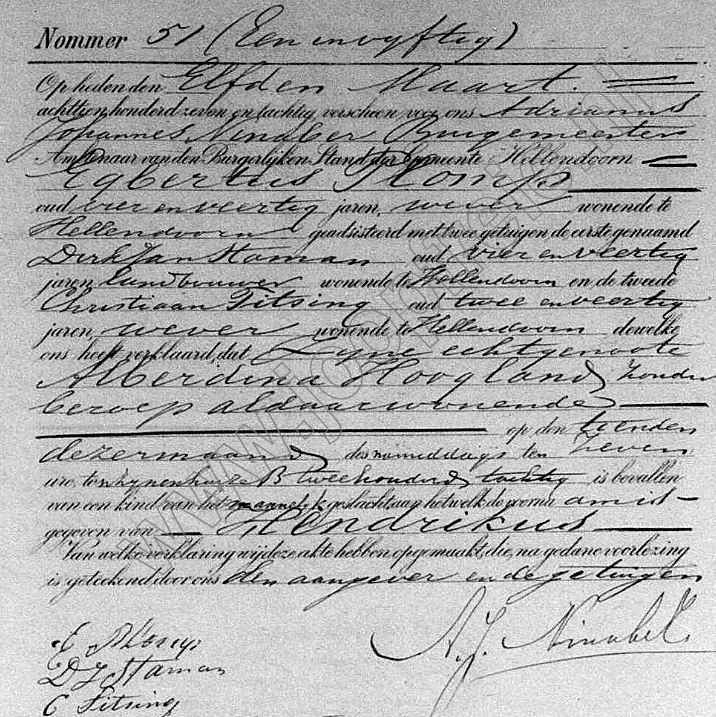 Nommer 51 (Een en vyftig)
Op heden den Elfden Maart.
achttien honderd zeven en tachtig, verscheen voor ons Adrianus
Johannes Ninaber Burgemeester
Ambtenaar van den Burgerlijken Stand der Gemeente Hellendoorn
Egbertus Plomp
oud vier en veertig jaren, wever wonende te
Hellendoorn geadsisteerd met twee getuigen de eerste genaamd
Dirk Jan Staman oud vier en veertig
jaren, landbouwer wonende te Hellendoorn en de tweede
Christiaan Fitsing oud twee en veertig
jaren, wever wonende te Hellendoorn dewelke
ons heeft verklaard, dat Zyne echtgenoote
Alberdina Hoogland, zonder
beroep aldaar wonende
op den tienden
dezer maand des namiddags ten zeven
ure, ten zynen huize B twee honderd tachtig is bevallen
van een kind van het mannelijk geslacht, aan hetwelk de voorna am is
gegeven van Hendrikus
Van welke verklaring wij deze akte hebben opgemaakt, die, na gedane voorlezing
is geteekend door ons den aangever en de getuigen
E Plomp
D J Staman
C Fitsing
A. J. Ninaber